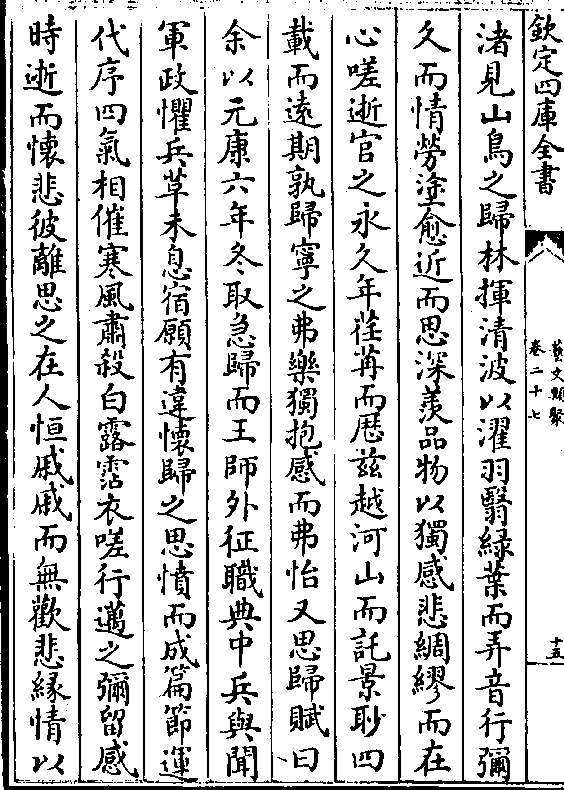 欽定四庫全書
藝文類聚
卷二十七
十五
渚見山鳥之歸林揮清波以濯羽翳緑葉而弄音行彌
久而情勞塗愈近而思深羨品物以獨感悲綢繆而在
心嗟逝官之永久年荏苒而厯兹越河山而託景眇四
載而逺期孰歸寧之弗樂獨抱感而弗怡又思歸賦曰
余以元康六年冬取急歸而王師外征職典中兵與聞
軍政懼兵革未息宿願有違懷歸之思憤而成篇節運
代序四氣相催寒風肅殺白露霑衣嗟行邁之彌留感
時逝而懷悲彼離思之在人恒戚戚而無歡悲緣情以